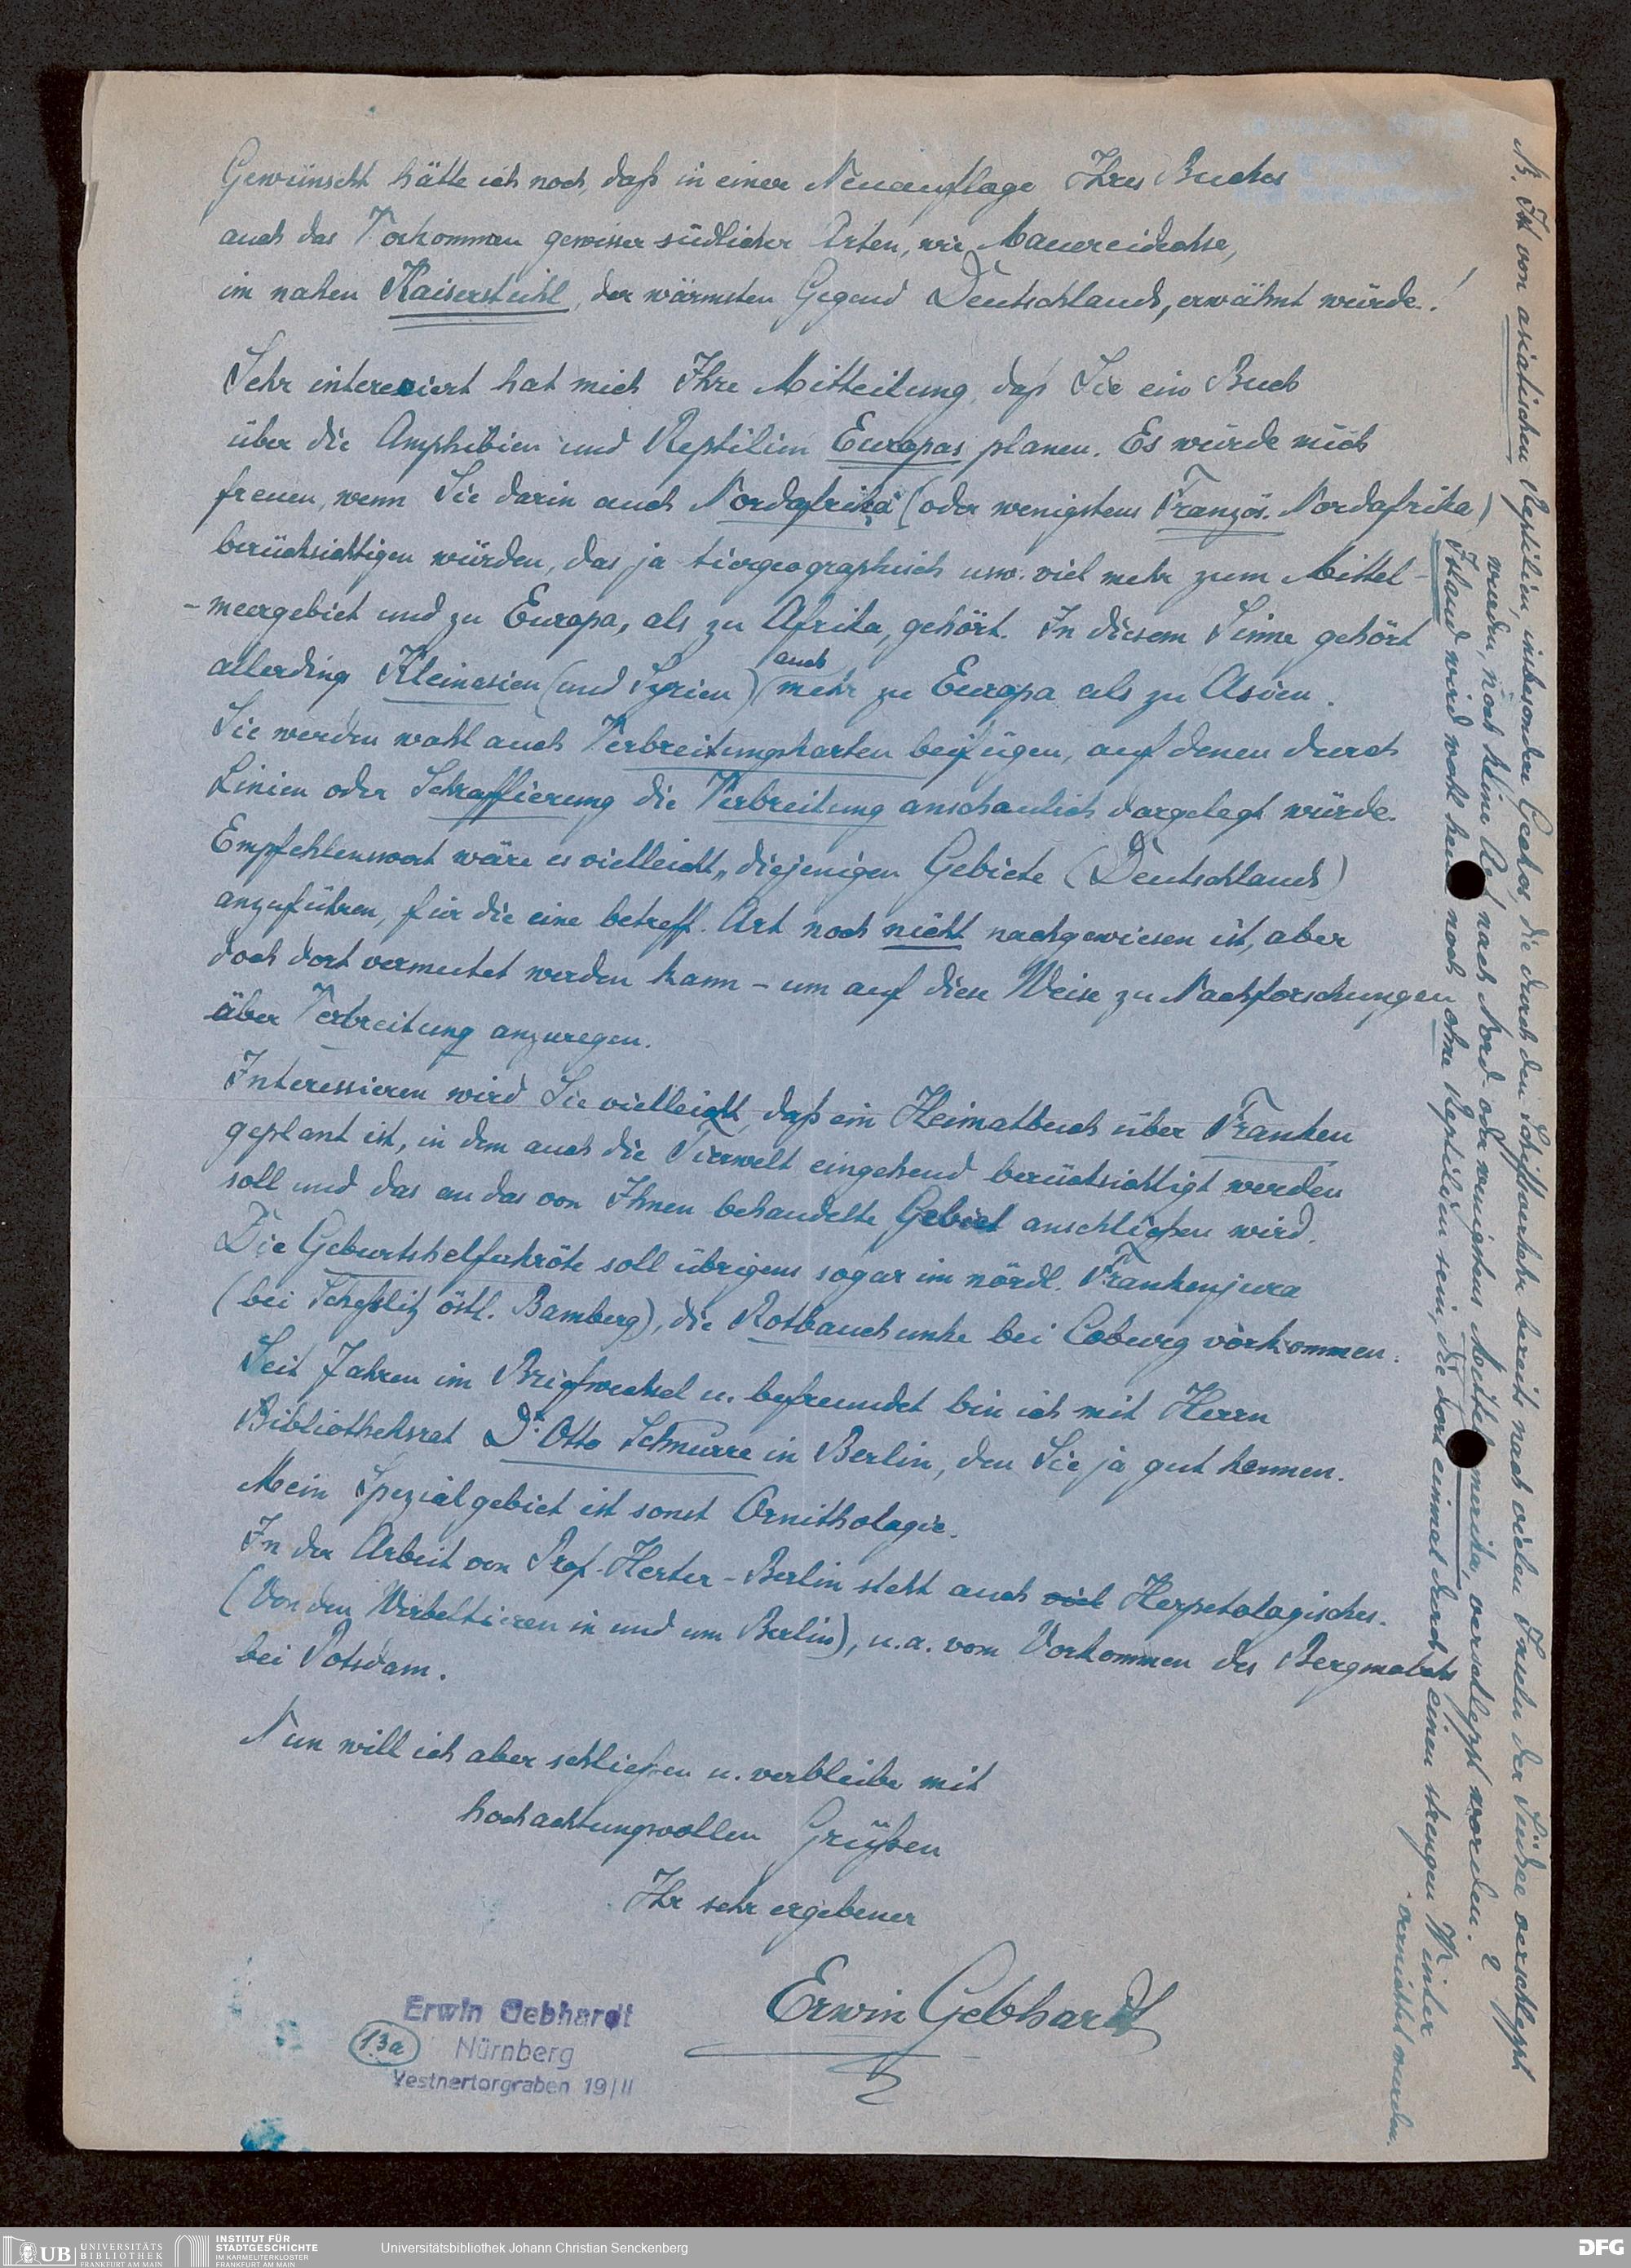 Gewünscht hätte ich noch, daß in einer Neuauflage Ihres Buches
auch das Vorkommen gewisser südlicher Arten, wie Mauereidechse,
im nahen Kaiserstuhl, der wärmsten Gegend Deutschlands, erwähnt würde.!
Sehr interesiert hat mich Ihre Mitteilung, daß Sie ein Buch
über die Amphibien und Reptilien Europas planen. Es würde mich
freuen, wenn Sie darin auch Nordafrika (oder wenigstens Französ. Nordafrika)
berücksichtigen würden, das ja tiergeographisch usw. viel mehr zum Mittel-
-meergebiet und zu Europa, als zu Afrika, gehört. In diesem Sinne gehört
allerding Kleinasien (und Syrien) auch mehr zu Europa als zu Asien.
Sie werden wohl auch Verbreitungskarten beifügen, auf denen durch
Linien oder Schraffierung die Verbreitung anschaulich dargelegt würde.
Empfehlenswert wäre es vielleicht, diejenigen Gebiete (Deutschlands)
anzuführen, für die eine betreff. Art noch nicht nachgewiesen ist, aber
doch dort vermutet werden kann - um auf diese Weise zu Nachforschungen
über Verbreitung anzuregen.
Interessieren wird Sie vielleicht, daß ein Heimatbuch über Franken
geplant ist, in dem auch die Tierwelt eingehend berücksichtigt werden
soll und das an das von Ihnen behandelte Gebiet anschließen wird.
Die Geburtshelferkröte soll übrigens sogar im nördl. Frankenjura
(bei Scheßlitz östl. Bamberg), die Rotbauchunke bei Coburg vorkommen.
Seit Jahren im Briefwechsel u. befreundet bin ich mit Herrn
Bibliotheksrat Dr. Otto Schnurre in Berlin, den Sie ja gut kennen.
Mein Spezialgebiet ist sonst Ornithologie.
In der Arbeit von Prof. Herter-Berlin steht auch viel Herpetologisches.
(Von den Wirbeltieren in und um Berlin), u.a. vom Vorkommen des Bergmolchs
bei Potsdam.
Nun will ich aber schließen u. verbleibe mit
hochachtungsvollen Grüßen
Ihr sehr ergebener
Erwin Gebhardt
Erwin Gebhardt
13a
Nürnberg
Vestnertorgraben 19/II
N.B. Ist von asiatischen Reptilien, insbesondere Geckos, die durch den Schiffverkehr bereits nach vielen Inseln der Südsee verschleppt
wurden, noch keine Art nach Nord- oder wenigstens Mittelamerika verschleppt worden. ?
Island wird wohl heute noch ohne Reptilien sein, die dort einmal durch einen strengen Winter
vernichtet wurden.
UB UNIVERSITÄTS
BIBLIOTHEK
FRANKFURT AM MAIN
INSTITUT FÜR
STADTGESCHICHTE
IM KARMELITERKLOSTER
FRANKFURT AM MAIN
Universitätsbibliothek Johann Christian Senckenberg
DFG